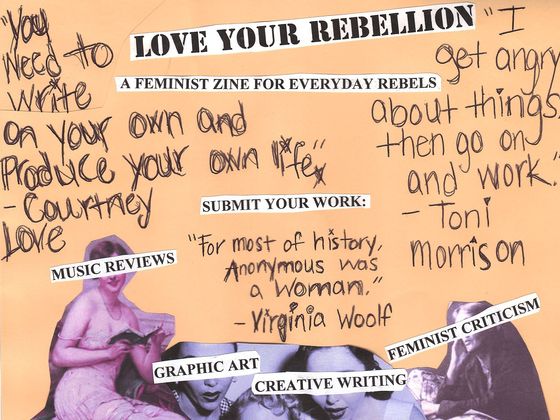 LOVE YOUR REBELLION
A FEMINIST ZINE FOR EVERYDAY REBELS
"You
need to
write
on your own and
produce your own life"
- Courtney
Love
"I
get angry
about things,
then go on
and work."
- Toni
morrison
SUBMIT YOUR WORK:
"For most of history,
Anonymous was
a woman."
- Virginia Woolf
MUSIC REVIEWS
GRAPHIC ART
CREATIVE WRITING
FEMINIST CRITICISM